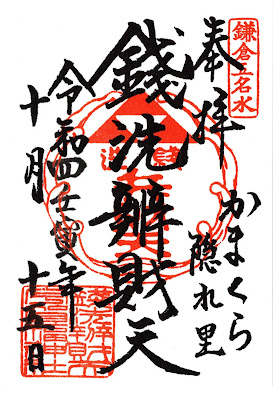 鎌倉五名水
奉拝
かまくら
隠れ里
銭洗辨財天
令和四壬寅年
十月
十五日